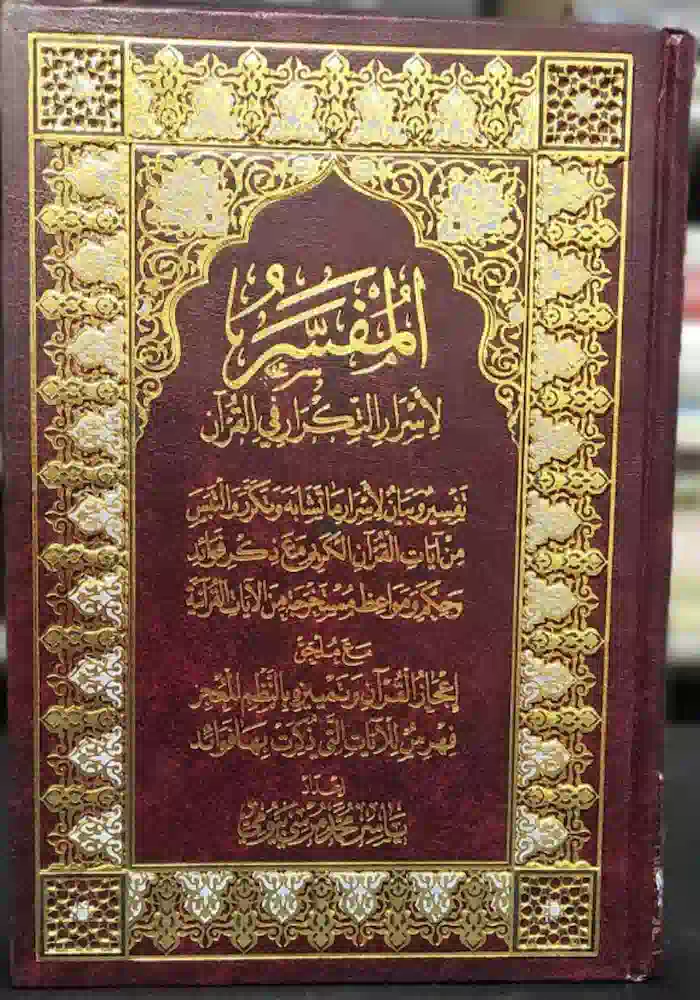 المُفَسِّرُ
لِأَسْرَارِ التِّكْرَارِ فِي القُرْآنِ
تَفْسِيرٌ وَبَيَانٌ لِأَسْرَارِ مَا تَشَابَهَ وَتَكَرَّرَ وَالتَبَسَ
مِنْ آيَاتِ القُرْآنِ الكَرِيمِ مَعَ ذِكْرِ فَوَائِد
وَحِكَمٍ وَمَوَاعِظ مُسْتَخْرَجَةٍ مِنَ الآيَاتِ القُرْآنِيَّة
مَعَ مُلْحَق
إِعْجَازُ القُرْآنِ وَتَمَيُّزِهِ بِالنَّظْمِ المُعْجِز
فِهْرِسٌ لِلْآيَاتِ الَّتِي ذُكِرَتْ بِهَا فَوَائِد
إِعْدَاد
يَاسِر مُحَمَّد مُرْسِي بَيُّومِي